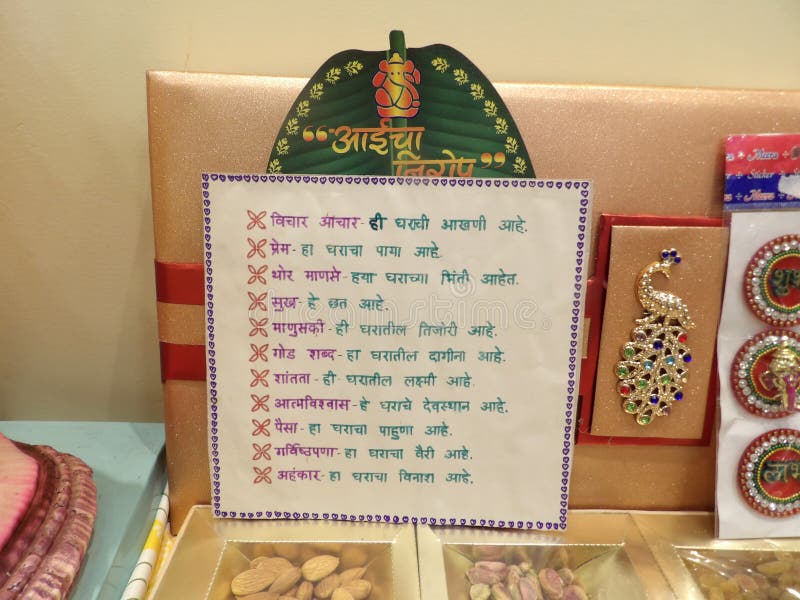 “आईचा
निरोप”
विचार आचार - ही घराची आखणी आहे.
प्रेम - हा घराचा पाया आहे.
थोर माणसे - हया घराच्या भिंती आहेत.
सुख - हे छत आहे.
माणुसकी - ही घरातील तिजोरी आहे.
गोड शब्द - हा घरातील दागीना आहे.
शांतता - ही घरातील लक्ष्मी आहे.
आत्मविश्वास - हे घराचे देवस्थान आहे.
पैसा - हा घराचा पाहुणा आहे.
गर्विष्ठपणा - हा घराचा वैरी आहे.
अहंकार - हा घराचा विनाश आहे.
Meera
Sticker
Meera
शुभ
लाभ
dreamstime